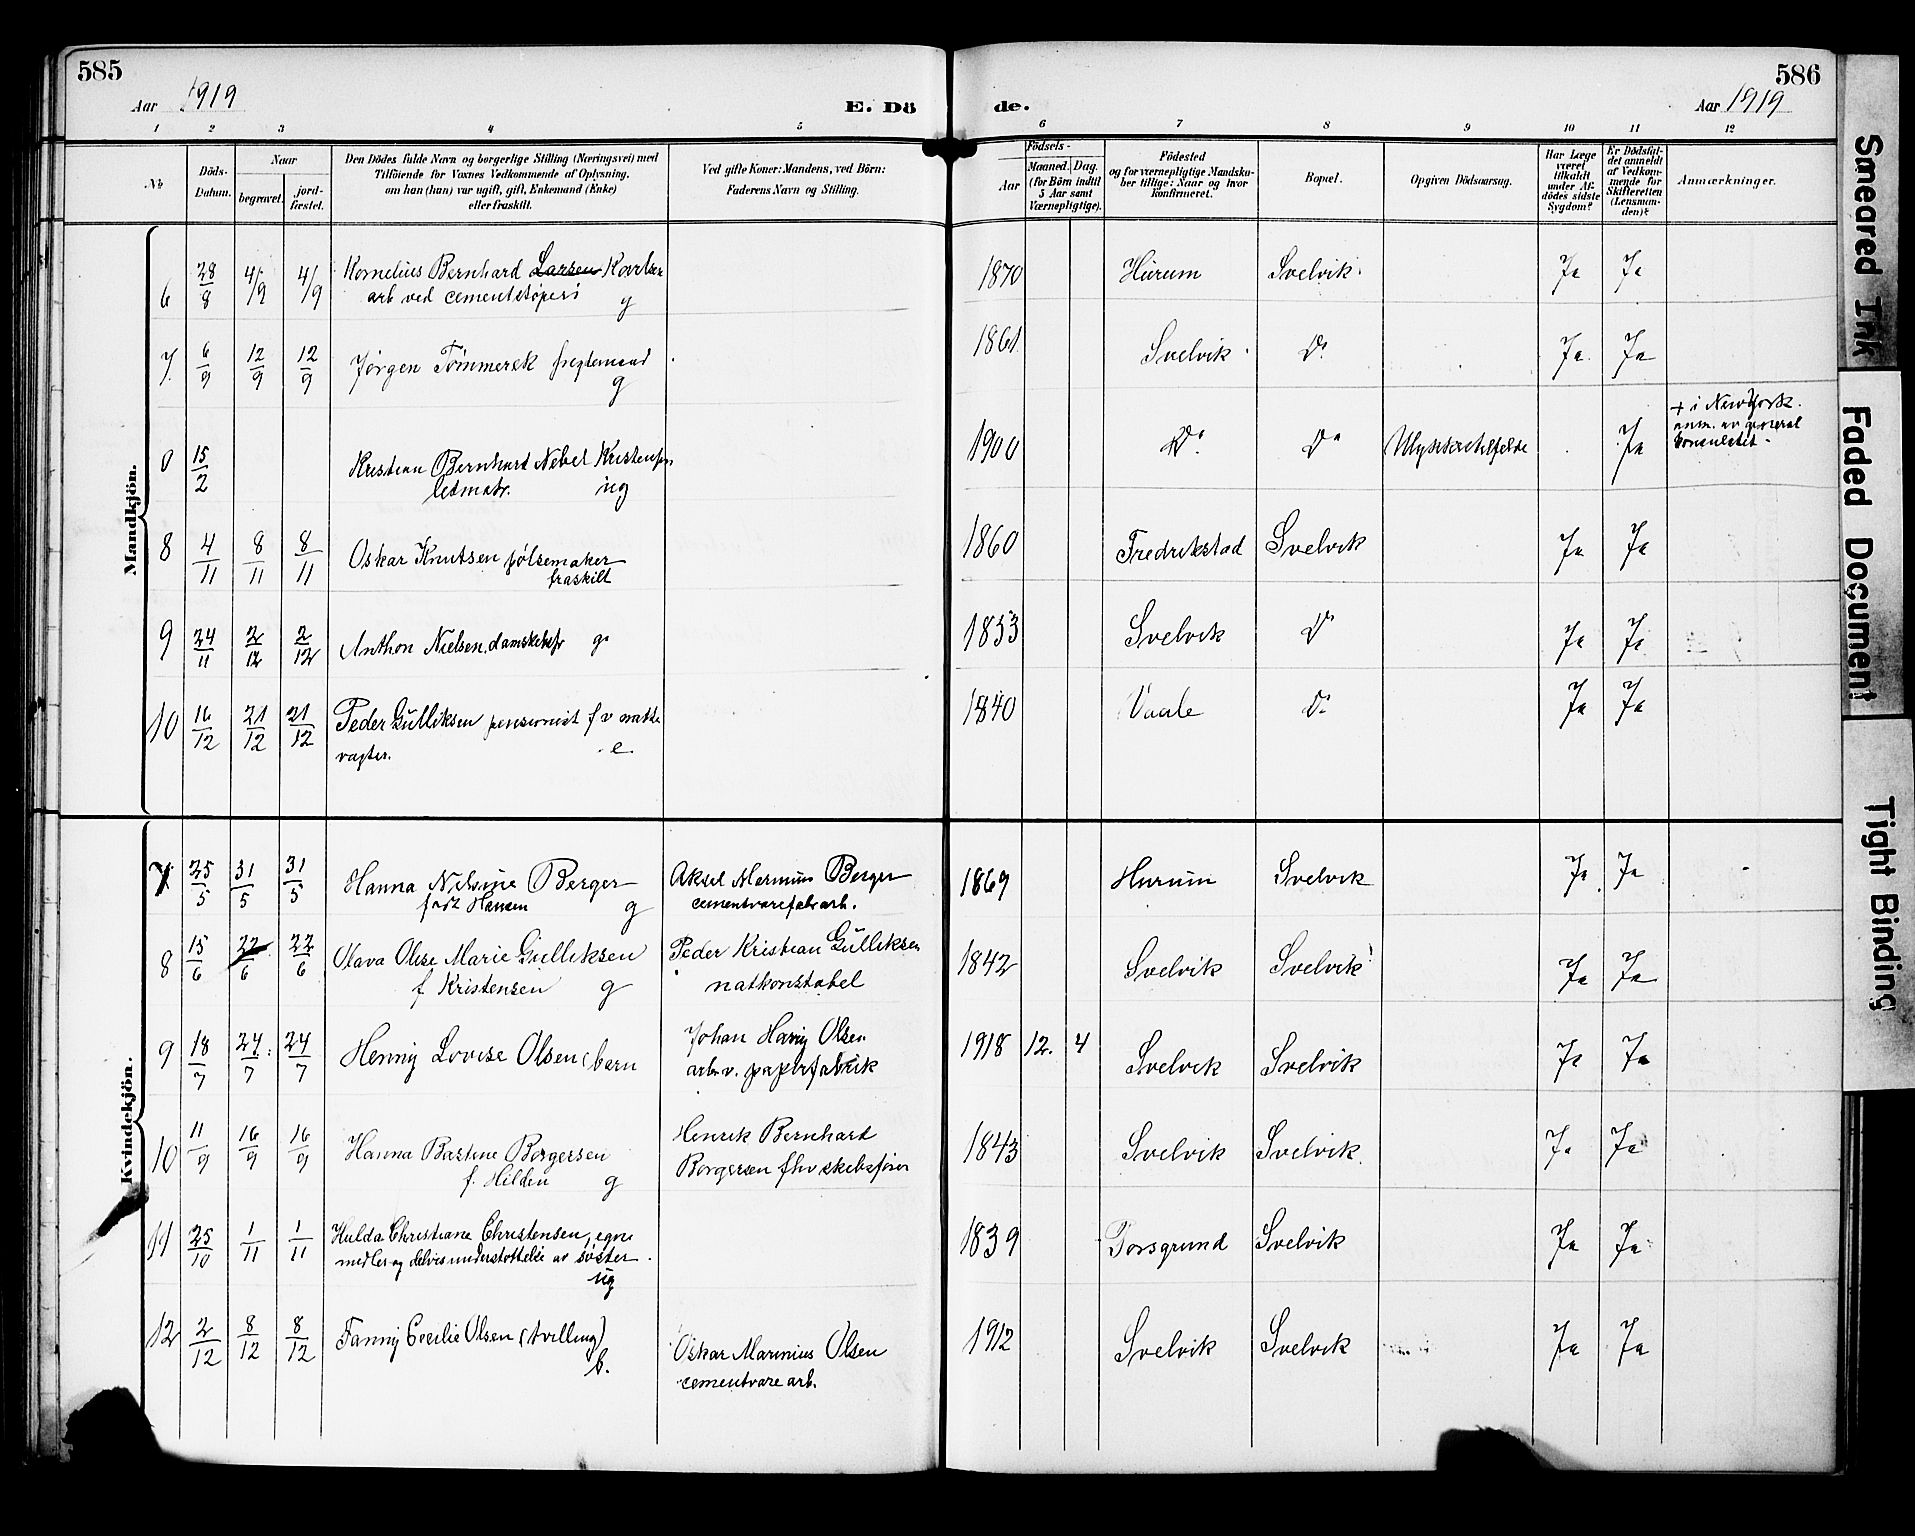 585
Aar 1919
E. Dö
de.
586
Aar 1919
1 2 3 4 5 6 7 8 9 10 11 12
No
Döds-
Datum.
Naar
begravet.
jord-
fæstet.
Den Dödes fulde Navn og borgerlige Stilling (Næringsvei) med
Tilföiende for Voxnes Vedkommende af Oplysning,
om han (hun) var ugift, gift, Enkemand (Enke)
eller fraskilt.
Ved gifte Koner: Mandens, ved Börn:
Faderens Navn og Stilling.
Födsels-
Aar
Maaned. Dag.
(for Börn indtil
5 Aar samt
Værnepligtige).
Födested
og for værnepligtige Mandsku-
ber tillige: Naar og hvor
konfirmeret.
Bopæl.
Opgiven Dödsaarsag.
Har Læge
været
tilkaldt
under Af-
dödes sidste
Sygdom?
Er Dödsfal-
det anmeldt
af Vedkom-
mende for
Skifteretten
(Lensman-
den)?
Anmærkninger.
Mandkjön.
6 28/8 4/9 4/9 Kornelius Bernhard Larsen 1870 Hurum Svelvik Ja Ja
arb ved cementstøperi g
7. 6/9 12/9 12/9 Jørgen Tømmerek g 1861 Svelvik Do Ja Ja
0 15/2 Kristian Bernhard Nebel Kristensen 1900 Do Do Ulykkestilfelde Ja + i New York.
letmatr. ug
anm. av general
konsulatet
8 4/11 8/11 8/11 Oskar Knutsen pølsemaker 1860 Fredrikstad Svelvik Ja Ja
fraskilt
9 24/11 2/12 2/12 Anthon Nielsen, g 1853 Svelvik Do Ja Ja
10 16/12 21/12 21/12 Peder Gulliksen pensionist f v natte 1840 Vaale Do Ja Ja
vagter. e.
Kvindekjön.
7 25/5 31/5 31/5 Hanna Nilsine Berger Aksel Marinius Berger 1869 Hurum Svelvik Ja Ja
født Hansen g cementvarefabarb.
8 15/6 22/6 22/6 Olava Olise Marie Gulliksen Peder Kristian Gulliksen 1842 Svelvik Svelvik Ja Ja
f. Kristensen g natkonstabel
9 18/7 24/7 24/7 Henny Lovise Olsen (barn Johan Harry Olsen 1918 12. 4 Svelvik Svelvik Ja Ja
arb. v. papirfabrik
10 11/9 16/9 16/9 Hanna Bastine Borgersen Henrik Bernhard 1843 Svelvik Svelvik Ja Ja
f. Hilden g Borgersen fhv skibsfører
11 25/10 1/11 1/11 Hulda Christiane Christensen, egne 1839 Porsgrund Svelvik Ja Ja
midler og delvis understøttelse av søster.
ug
12 2/12 8/12 8/12 Fanny Cecilie Olsen (tvilling) Oskar Marinius Olsen 1912 Svelvik Svelvik Ja Ja
b. cementvare arb.
Smeared Ink
Faded Document
Tight Binding